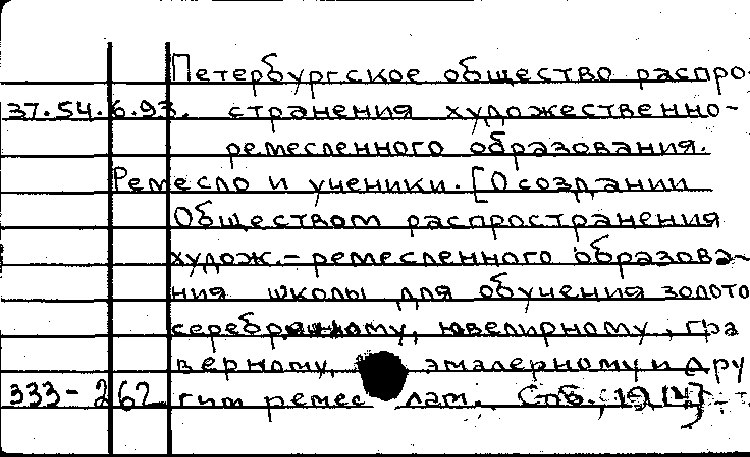 Петербургское общество распро-
37.54.6.93. странения художественно-
ремесленного образования.
Ремесло и ученики. [О создании
Обществом распространения
худож.-ремесленного образова-
ния школы для обучения золото
серебряному, ювелирному, гра
верному, эмалерному и дру
333-262 гим ремеслам. Спб.,